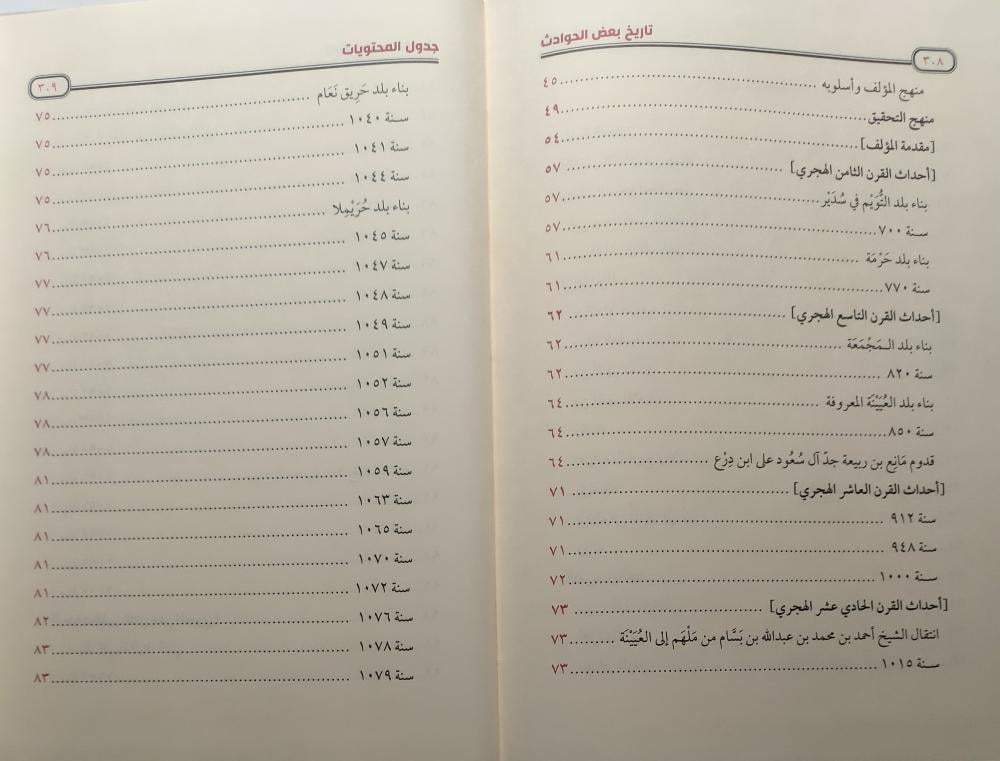 تاريخ بعض الحوادث
٣٠٨
منهج المؤلف وأسلوبه ..... ٤٥
منهج التحقيق ..... ٤٩
[مقدمة المؤلف] ..... ٥٤
[أحداث القرن الثامن الهجري] ..... ٥٧
بناء بلد التُّوَيْم في سُدَيْر ..... ٥٧
سـنة ٧٠٠ ..... ٥٧
بناء بلد حَرْمَة ..... ٦١
سنة ٧٧٠ ..... ٦١
[أحداث القرن التاسع الهجري] ..... ٦٢
بناء بلد الـمَجْمَعَة ..... ٦٢
سنة ٨٢٠ ..... ٦٢
بناء بلد العُيَيْنَة المعروفة ..... ٦٤
سنة ٨٥٠ ..... ٦٤
قدوم مَانِع بن ربيعة جدّ آل سُعُود على ابن دِرْع ..... ٦٤
[أحداث القرن العاشر الهجري] ..... ٧١
سنة ٩١٢ ..... ٧١
سنة ٩٤٨ ..... ٧١
سنة ١٠٠٠ ..... ٧٢
[أحداث القرن الحادي عشر الهجري] ..... ٧٣
انتقال الشيخ أحمد بن محمد بن عبدالله بن بَسَّام من مَلْهَم إلى العُيَيْنَة ..... ٧٣
سـنة ١٠١٥ ..... ٧٣
جدول المحتويات
٣٠٩
بناء بلد حَرِيق نَعَام ..... ٧٥
سـنة ١٠٤٠ ..... ٧٥
سنة ١٠٤١ ..... ٧٥
سنة ١٠٤٤ ..... ٧٥
بناء بلد حُرَيْمِلا ..... ٧٦
سنة ١٠٤٥ ..... ٧٦
سنة ١٠٤٧ ..... ٧٧
سنة ١٠٤٨ ..... ٧٧
سنة ١٠٤٩ ..... ٧٧
سنة ١٠٥١ ..... ٧٧
سنة ١٠٥٢ ..... ٧٨
سنة ١٠٥٦ ..... ٧٨
سنة ١٠٥٧ ..... ٧٨
سنة ١٠٥٩ ..... ٨١
سنة ١٠٦٣ ..... ٨١
سنة ١٠٦٥ ..... ٨١
سنة ١٠٧٠ ..... ٨١
سنة ١٠٧٢ ..... ٨١
سنة ١٠٧٦ ..... ٨٢
سنة ١٠٧٨ ..... ٨٣
سنة ١٠٧٩ ..... ٨٣